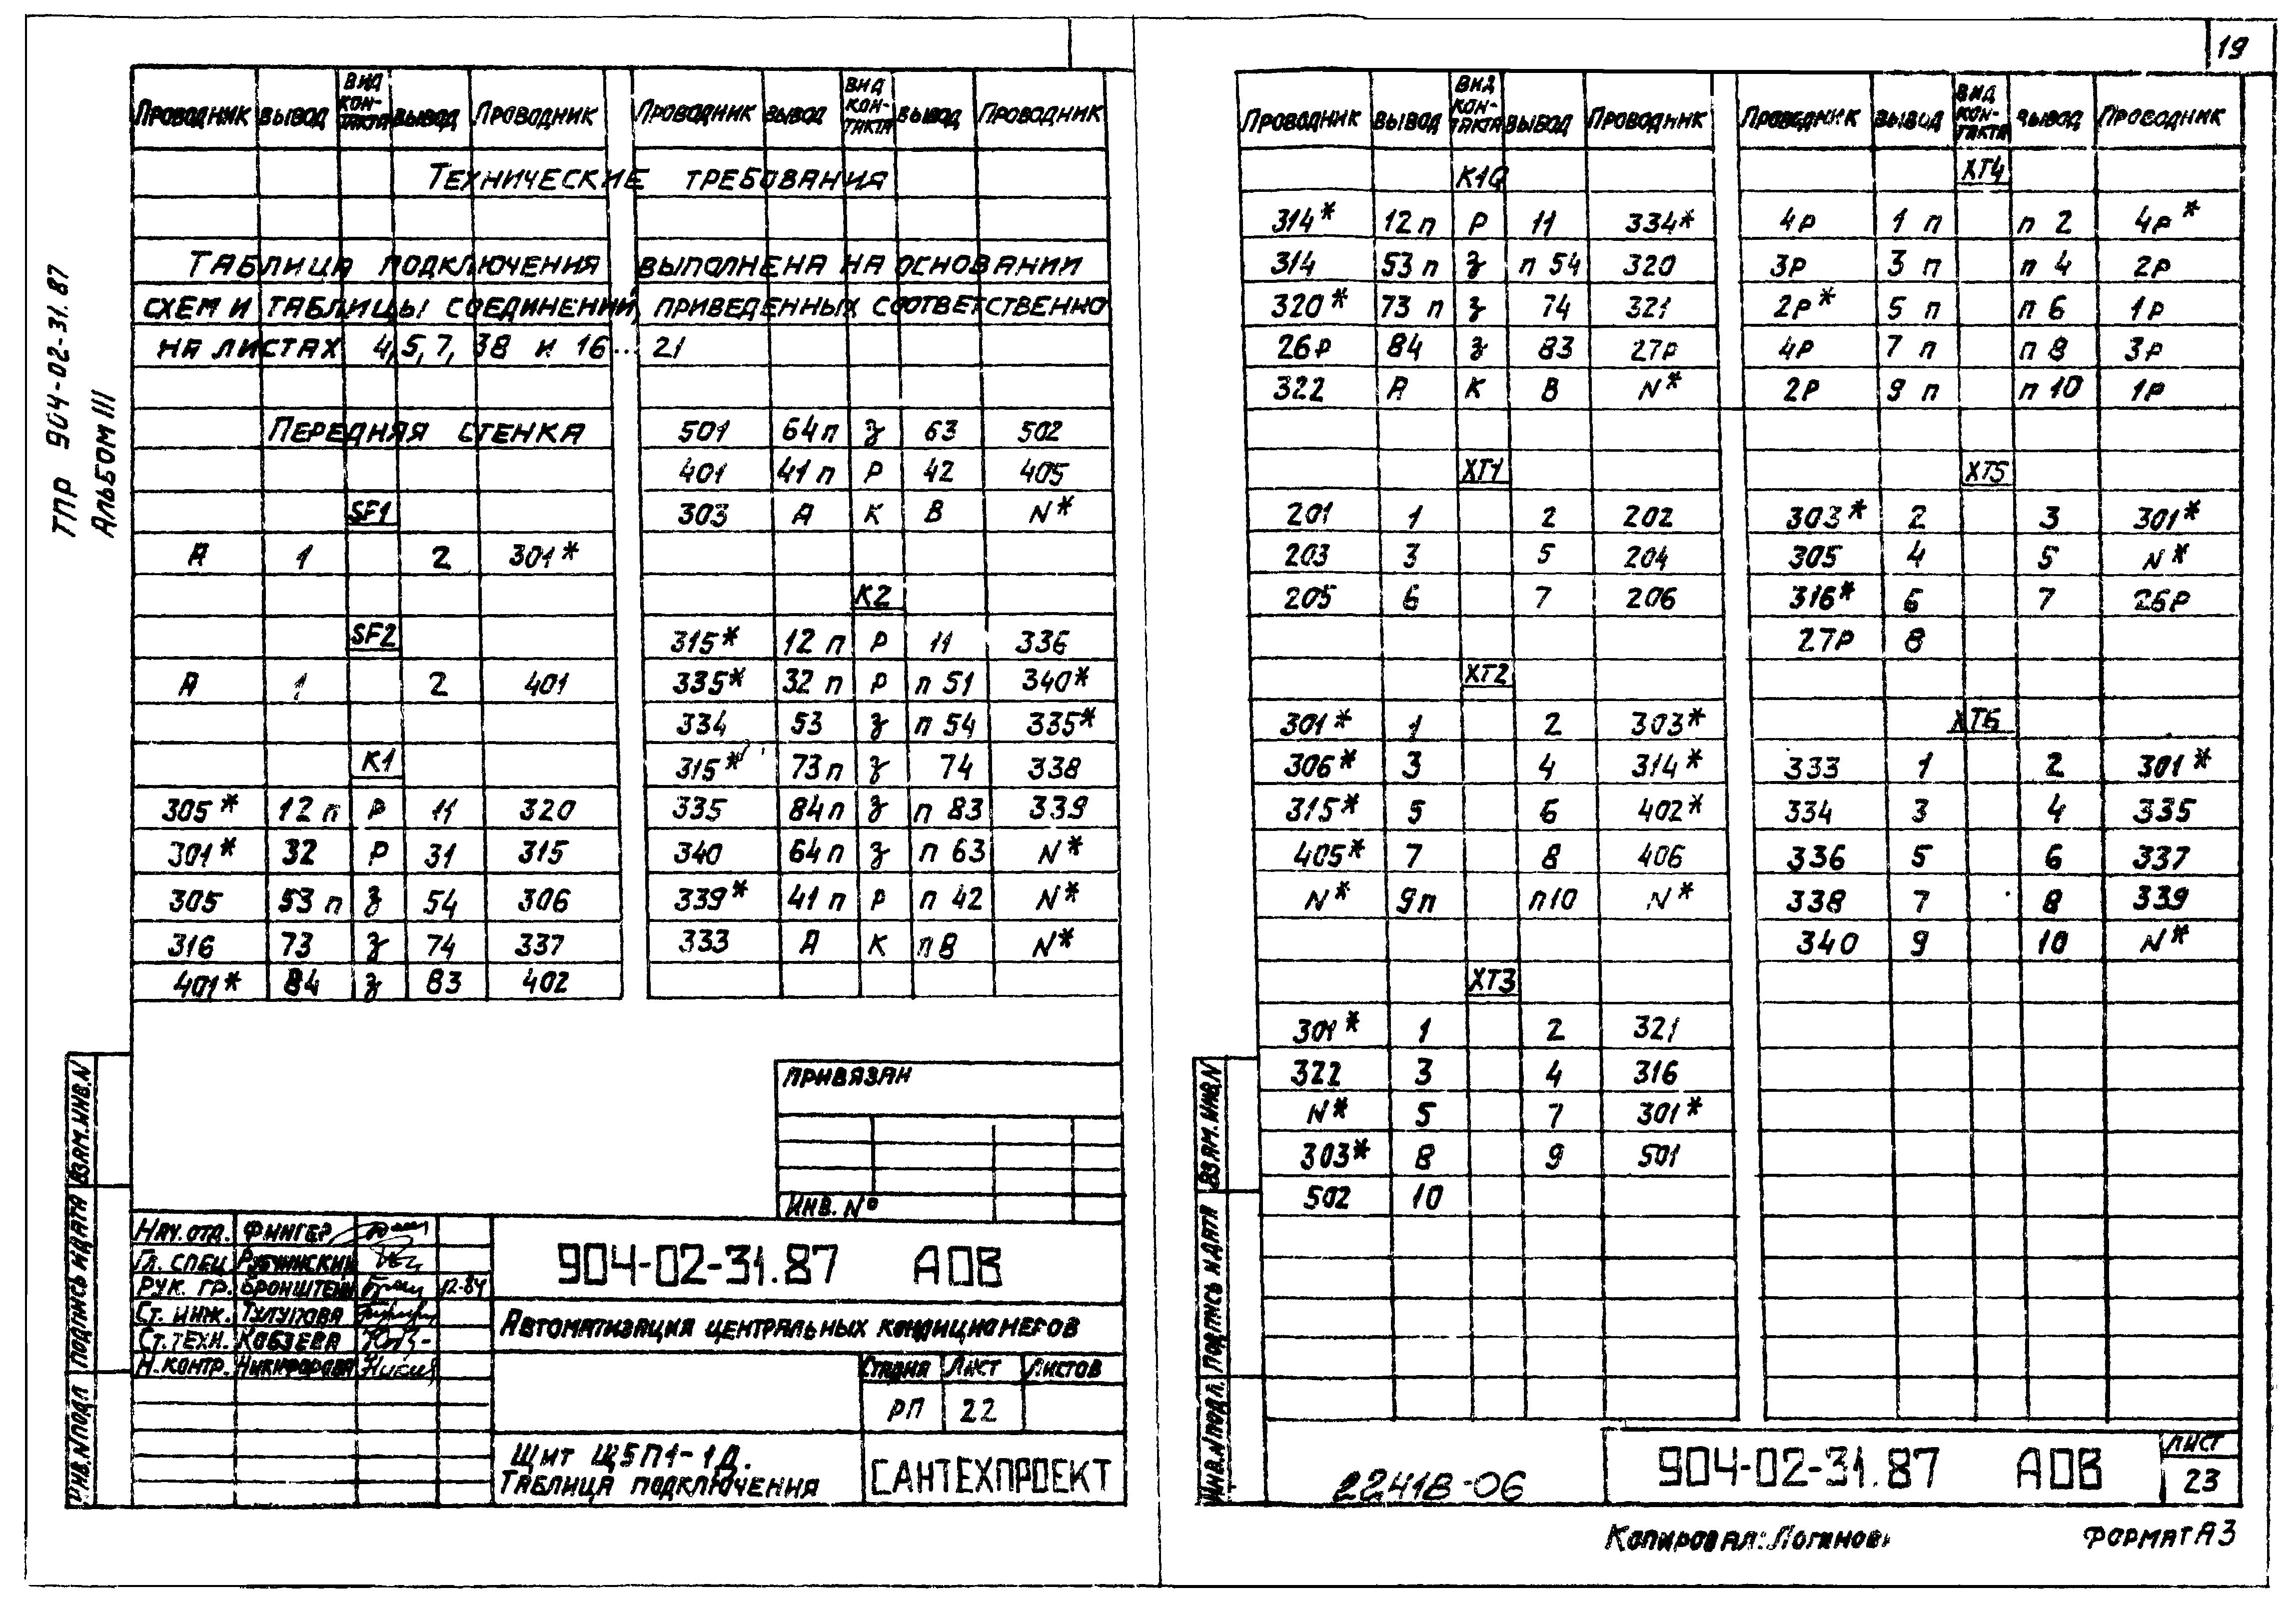 19
ТПР 904-02-31.87
Альбом III
Проводник Вывод Вид контакта Вывод Проводник Проводник Вывод Вид контакта Вывод Проводник
Технические требования
Таблица подключения выполнена на основании
схем и таблицы соединений, приведенных соответственно
на листах 4,5,7, 38 и 16...21
Передняя стенка
SF1
А 1 2 301*
SF2
А 1 2 401
К1
305* 12 п Р 11 320
301* 32 Р 31 315
305 53 п З 54 306
316 73 З 74 337
401* 84 З 83 402
501 64 п З 63 502
401 41 п Р 42 405
303 А К В N*
К2
315* 12 п Р 11 336
335* 32 п Р п 51 340*
334 53 З п 54 335*
315* 73 п З 74 338
335 84 п З п 83 339
340 64 п З п 63 N*
339* 41 п Р п 42 N*
333 А К п В N*
Привязан
Инв. №
Нач. отд. Фингер
Гл. спец. Рубчинский
Рук. гр. Бронштейн 12-84
Ст. инж. Тулупова
Ст. техн. Кабзева
Н. контр. Никифорова
904-02-31.87 АОВ
Автоматизация центральных кондиционеров
Стадия Лист Листов
РП 22
Щит Щ5П1-1Д.
Таблица подключения
САНТЕХПРОЕКТ
Взам. инв. N
Подпись и дата
Инв. N подл
Проводник Вывод Вид контакта Вывод Проводник Проводник Вывод Вид контакта Вывод Проводник
314* 12 п Р 11 334*
314 53 п З п 54 320
320* 73 п З 74 321
26Р 84 З 83 27Р
322 А К В N*
ХТ1
201 1 2 202
203 3 5 204
205 6 7 206
ХТ2
301* 1 2 303*
306* 3 4 314*
315* 5 6 402*
405* 7 8 406
N* 9п п10 N*
ХТ3
301* 1 2 321
322 3 4 316
N* 5 7 301*
303* 8 9 501
502 10
ХТ4
4Р 1 п п 2 4Р*
3Р 3 п п 4 2Р
2Р* 5 п п 6 1Р
4Р 7 п п 8 3Р
2Р 9 п п 10 1Р
ХТ5
303* 2 3 301*
305 4 5 N*
316* 6 7 26Р
27Р 8
ХТ6
333 1 2 301*
334 3 4 335
336 5 6 337
338 7 8 339
340 9 10 N*
Взам. инв. N
Подпись и дата
Инв. N подл.
22418-06
904-02-31.87 АОВ
Лист
23
Копировал:
Формат А3